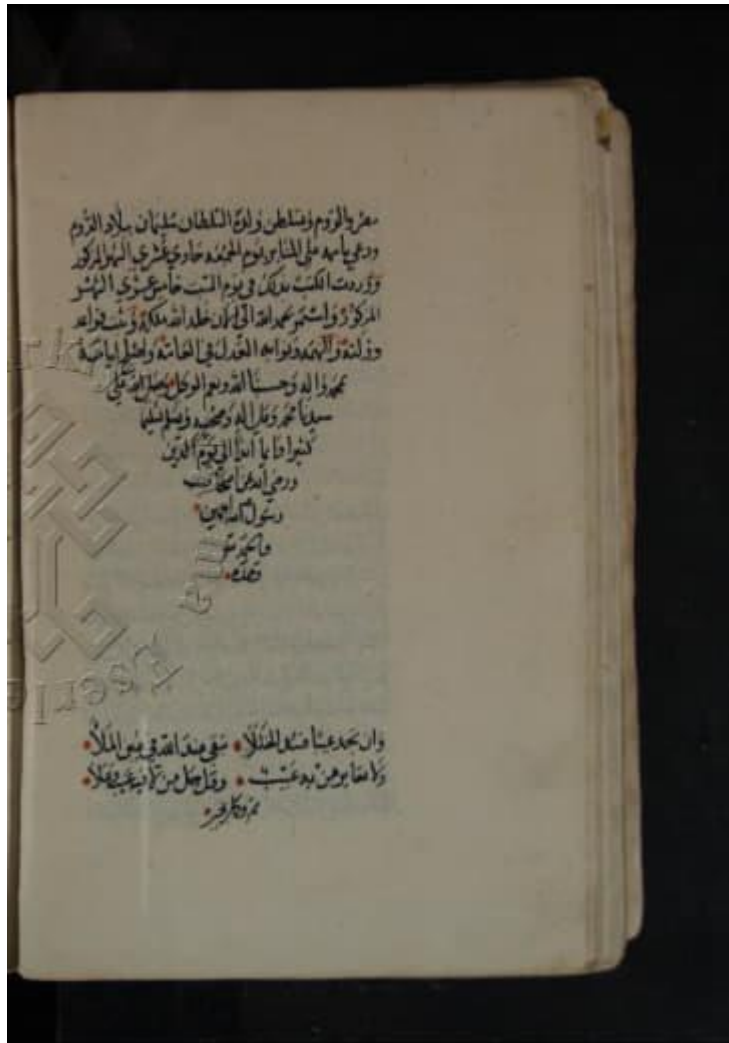 مصر والروم وتسلطن ولده السلطان سليمان ببلاد الروم
ودعي باسمه على المنابر يوم الجمعة حادي عشري الشهر المذكور
ووردت الكتب بذلك في يوم السبت خامس عشري الشهر
المذكور واستمر بحمد الله الى الان خلد الله ملكه وثبت قواعد
دولته والهمه العدل في العامة
محمد واله وحسبنا الله ونعم الوكيل وصلى الله على
سيدنا محمد وعلى اله وصحبه وسلم تسليما
كثيرا دايما ابدا الى يوم الدين
ورضي الله عن اصحاب
رسول الله اجمعين
والحمد لله
وحده
وان تجد عيبا فسد الخللا
ولا من به عيب وقل جل من لا فيه عيب وعلا
تم